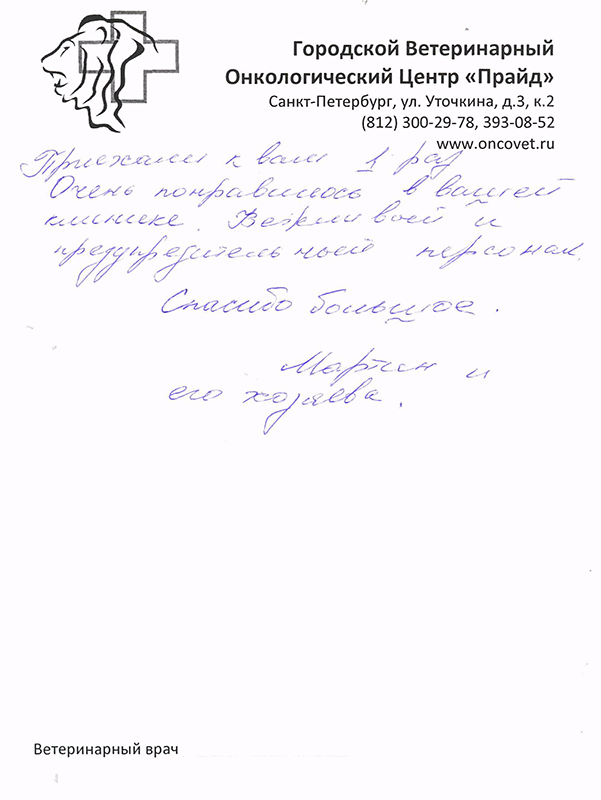 Городской Ветеринарный
Онкологический Центр «Прайд»
Санкт-Петербург, ул. Уточкина, д.3, к.2
(812) 300-29-78, 393-08-52
www.oncovet.ru
Приехали к вам 1 раз
Очень понравилось в вашей
клинике. Вежливый и
предупредительный персонал.
Спасибо большое.
Мартин и
его хозяева.
Ветеринарный врач